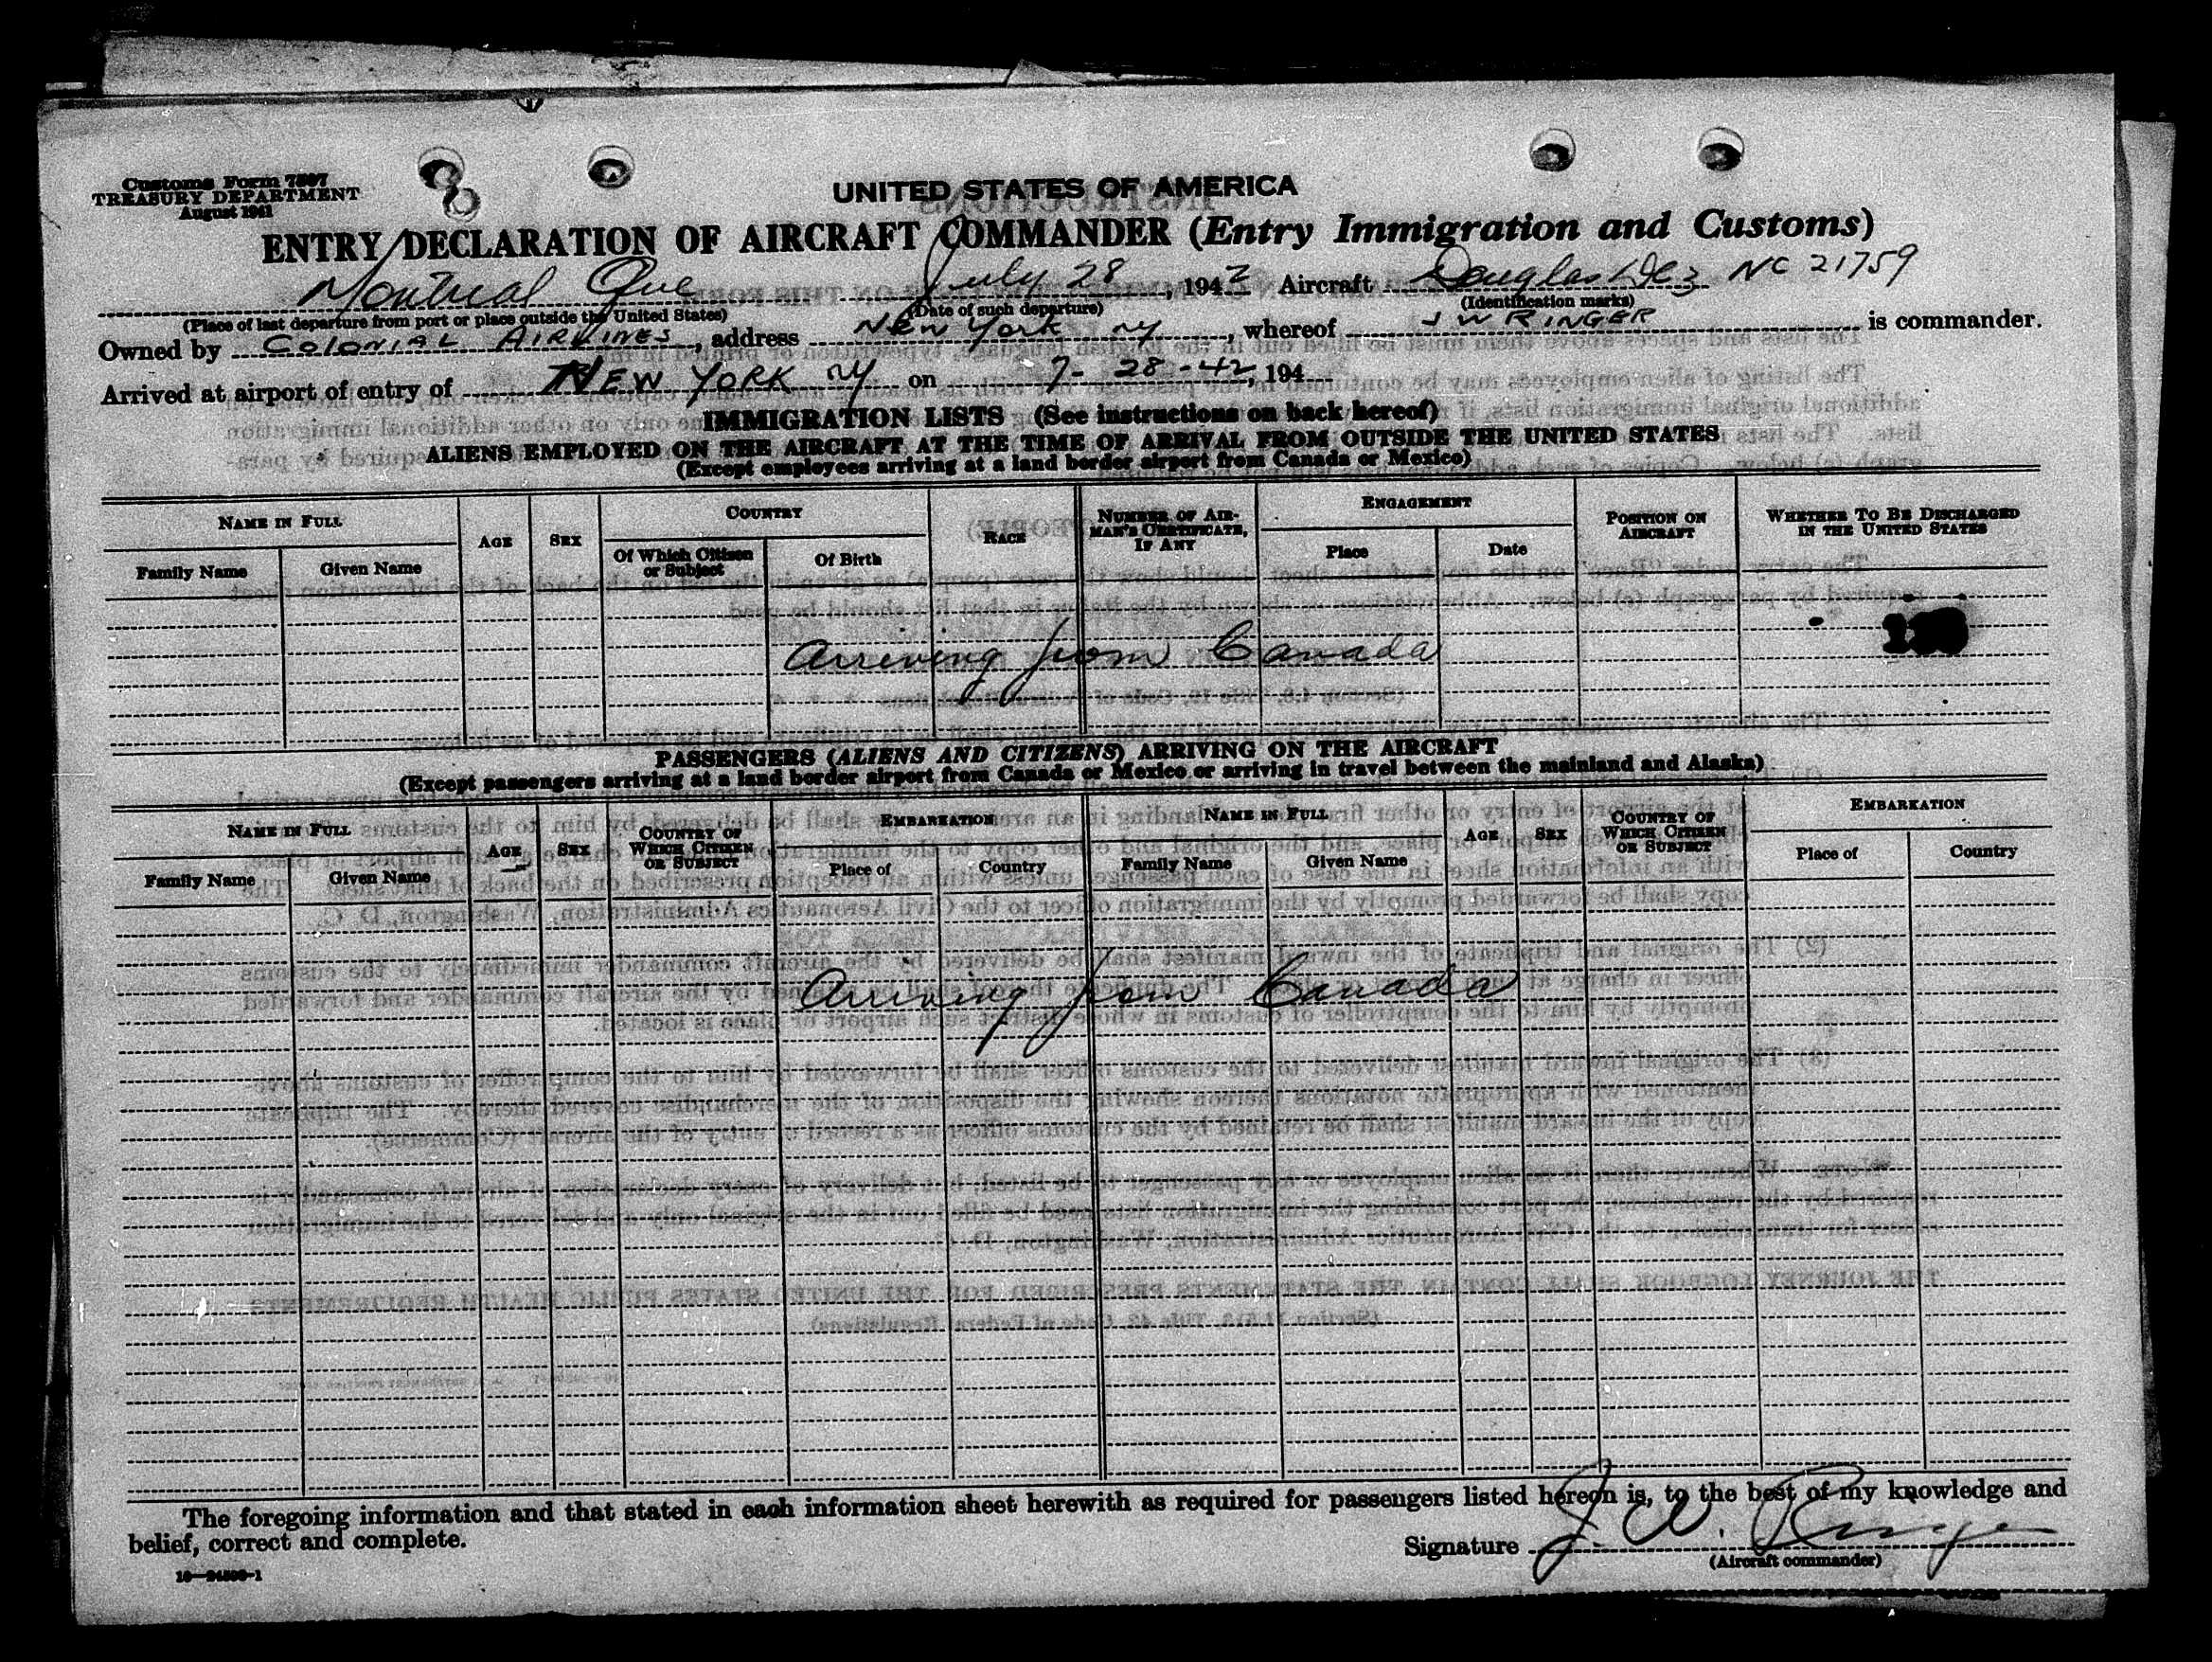 Customs Form 7507
TREASURY DEPARTMENT
August 1941
UNITED STATES OF AMERICA
ENTRY DECLARATION OF AIRCRAFT COMMANDER (Entry Immigration and Customs)
Montreal Que July 28, 1942 Aircraft Douglas Dc3 NC 21759
(Place of last departure from port or place outside the United States) (Date of such departure) (Identification marks)
Owned by COLONIAL AIRLINES, address NEW YORK NY, whereof J W RINGER is commander.
Arrived at airport of entry of NEW YORK NY on 7-28-42, 194
IMMIGRATION LISTS (See instructions on back hereof)
ALIENS EMPLOYED ON THE AIRCRAFT AT THE TIME OF ARRIVAL FROM OUTSIDE THE UNITED STATES
(Except employees arriving at a land border airport from Canada or Mexico)
NAME IN FULL AGE SEX COUNTRY RACE NUMBER OF AIRMAN'S CERTIFICATE, IF ANY ENGAGEMENT POSITION ON AIRCRAFT WHETHER TO BE DISCHARGED IN THE UNITED STATES
Family Name Given Name Of Which Citizen or Subject Of Birth Place Date
Arriving from Canada
PASSENGERS (ALIENS AND CITIZENS) ARRIVING ON THE AIRCRAFT
(Except passengers arriving at a land border airport from Canada or Mexico or arriving in travel between the mainland and Alaska)
NAME IN FULL AGE SEX COUNTRY OF WHICH CITIZEN OR SUBJECT EMBARKATION NAME IN FULL AGE SEX COUNTRY OF WHICH CITIZEN OR SUBJECT EMBARKATION
Family Name Given Name Place of Country Family Name Given Name Place of Country
Arriving from Canada
The foregoing information and that stated in each information sheet herewith as required for passengers listed hereon is, to the best of my knowledge and
belief, correct and complete.
Signature J. W. Ringer
(Aircraft commander)